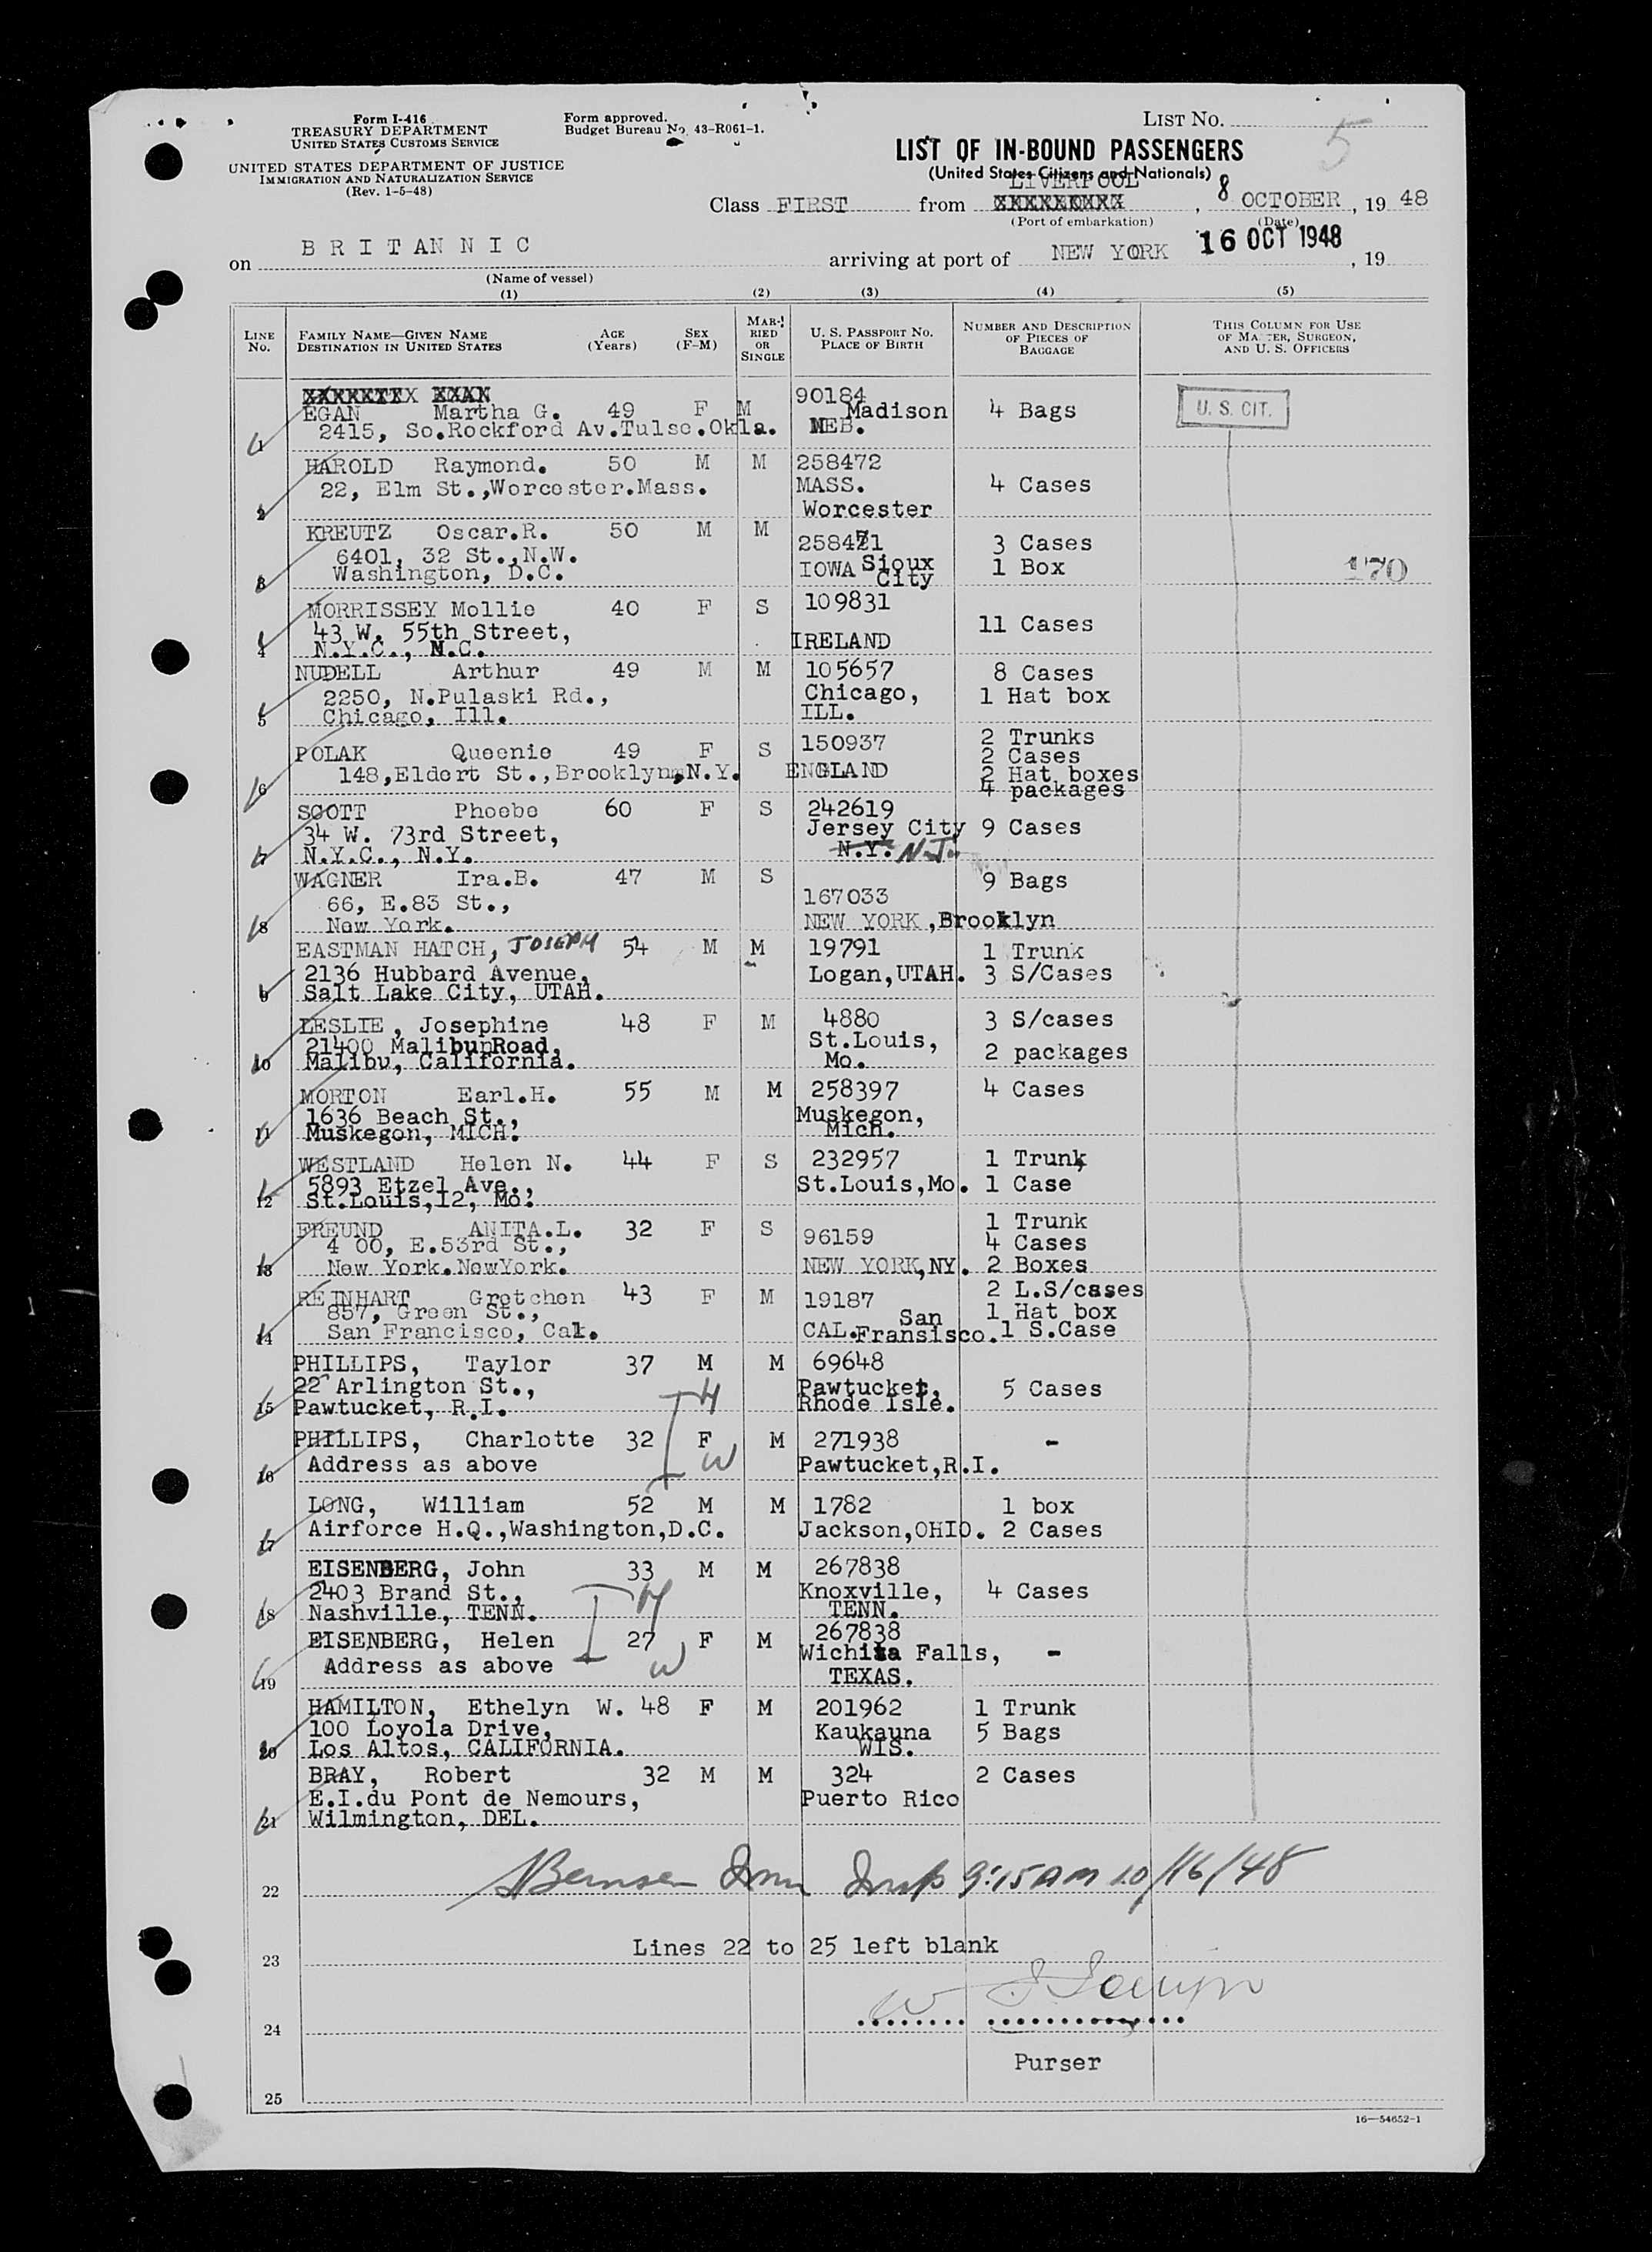 Form I-416
TREASURY DEPARTMENT
UNITED STATES CUSTOMS SERVICE
UNITED STATES DEPARTMENT OF JUSTICE
IMMIGRATION AND NATURALIZATION SERVICE
(Rev. 1-5-48)
Form approved.
Budget Bureau No. 43-R061-1.
LIST NO. 5
LIST OF IN-BOUND PASSENGERS
(United States Citizens and Nationals)
LIVERPOOL
Class FIRST from XXXXXXXXXX, 8 OCTOBER, 19 48
(Port of embarkation) (Date)
on BRITANNIC arriving at port of NEW YORK 16 OCT 1948, 19
(Name of vessel)
(1) (2) (3) (4) (5)
LINE No. FAMILY NAME—GIVEN NAME DESTINATION IN UNITED STATES AGE (Years) SEX (F-M) MARRIED OR SINGLE U. S. PASSPORT NO. PLACE OF BIRTH NUMBER AND DESCRIPTION OF PIECES OF BAGGAGE THIS COLUMN FOR USE OF MASTER, SURGEON, AND U. S. OFFICERS
90184
EGAN Martha G. 49 F M Madison 4 Bags U. S. CIT.
1 2415, So.Rockford Av.Tulsa.Okla. NEB.
HAROLD Raymond. 50 M M 258472
22, Elm St.,Worcester.Mass. MASS. 4 Cases
2 Worcester
KREUTZ Oscar.R. 50 M M 258471 3 Cases
6401, 32 St.,N.W. IOWA Sioux 1 Box 170
3 Washington, D.C. City
MORRISSEY Mollie 40 F S 109831
43 W. 55th Street, 11 Cases
4 N.Y.C., N.C. IRELAND
NUDELL Arthur 49 M M 105657 8 Cases
2250, N.Pulaski Rd., Chicago, 1 Hat box
5 Chicago, Ill. ILL.
2 Trunks
POLAK Queenie 49 F S 150937 2 Cases
148,Eldert St.,Brooklyn,N.Y. ENGLAND 2 Hat boxes
6 4 packages
SCOTT Phoebe 60 F S 242619
34 W. 73rd Street, Jersey City 9 Cases
7 N.Y.C., N.Y. N.Y. N.J.
WAGNER Ira.B. 47 M S 9 Bags
66, E.83 St., 167033
8 New York. NEW YORK,Brooklyn
EASTMAN HATCH, JOSEPH 54 M M 19791 1 Trunk
2136 Hubbard Avenue, Logan,UTAH. 3 S/Cases
9 Salt Lake City, UTAH.
LESLIE, Josephine 48 F M 4880 3 S/cases
21400 Malibu Road, St.Louis,
10 Malibu, California. Mo. 2 packages
MORTON Earl.H. 55 M M 258397 4 Cases
1636 Beach St., Muskegon,
11 Muskegon, MICH. Mich.
WESTLAND Helen N. 44 F S 232957 1 Trunk
5893 Etzel Ave., St.Louis,Mo. 1 Case
12 St.Louis,12, Mo.
FREUND ANITA.L. 32 F S 96159 1 Trunk
4 00, E.53rd St., 4 Cases
13 New York.NewYork. NEW YORK,NY. 2 Boxes
REINHART Gretchen 43 F M 19187 2 L.S/cases
857, Green St., San 1 Hat box
14 San Francisco, Cal. CAL.Fransisco. 1 S.Case
PHILLIPS, Taylor 37 M M 69648
22 Arlington St., H Pawtucket, 5 Cases
15 Pawtucket, R.I. Rhode Isle.
PHILLIPS, Charlotte 32 F M 271938 -
16 Address as above W Pawtucket,R.I.
LONG, William 52 M M 1782 1 box
17 Airforce H.Q.,Washington,D.C. Jackson,OHIO. 2 Cases
EISENBERG, John 33 M M 267838
2403 Brand St., H Knoxville, 4 Cases
18 Nashville, TENN. TENN.
EISENBERG, Helen 27 F M 267838
Address as above W Wichita Falls, -
19 TEXAS.
HAMILTON, Ethelyn W. 48 F M 201962 1 Trunk
100 Loyola Drive, Kaukauna 5 Bags
20 Los Altos, CALIFORNIA. WIS.
BRAY, Robert 32 M M 324 2 Cases
E.I.du Pont de Nemours, Puerto Rico
21 Wilmington, DEL.
22 9:15 AM 10/16/48
Lines 22 to 25 left blank
23
24
Purser
25
16—54652-1